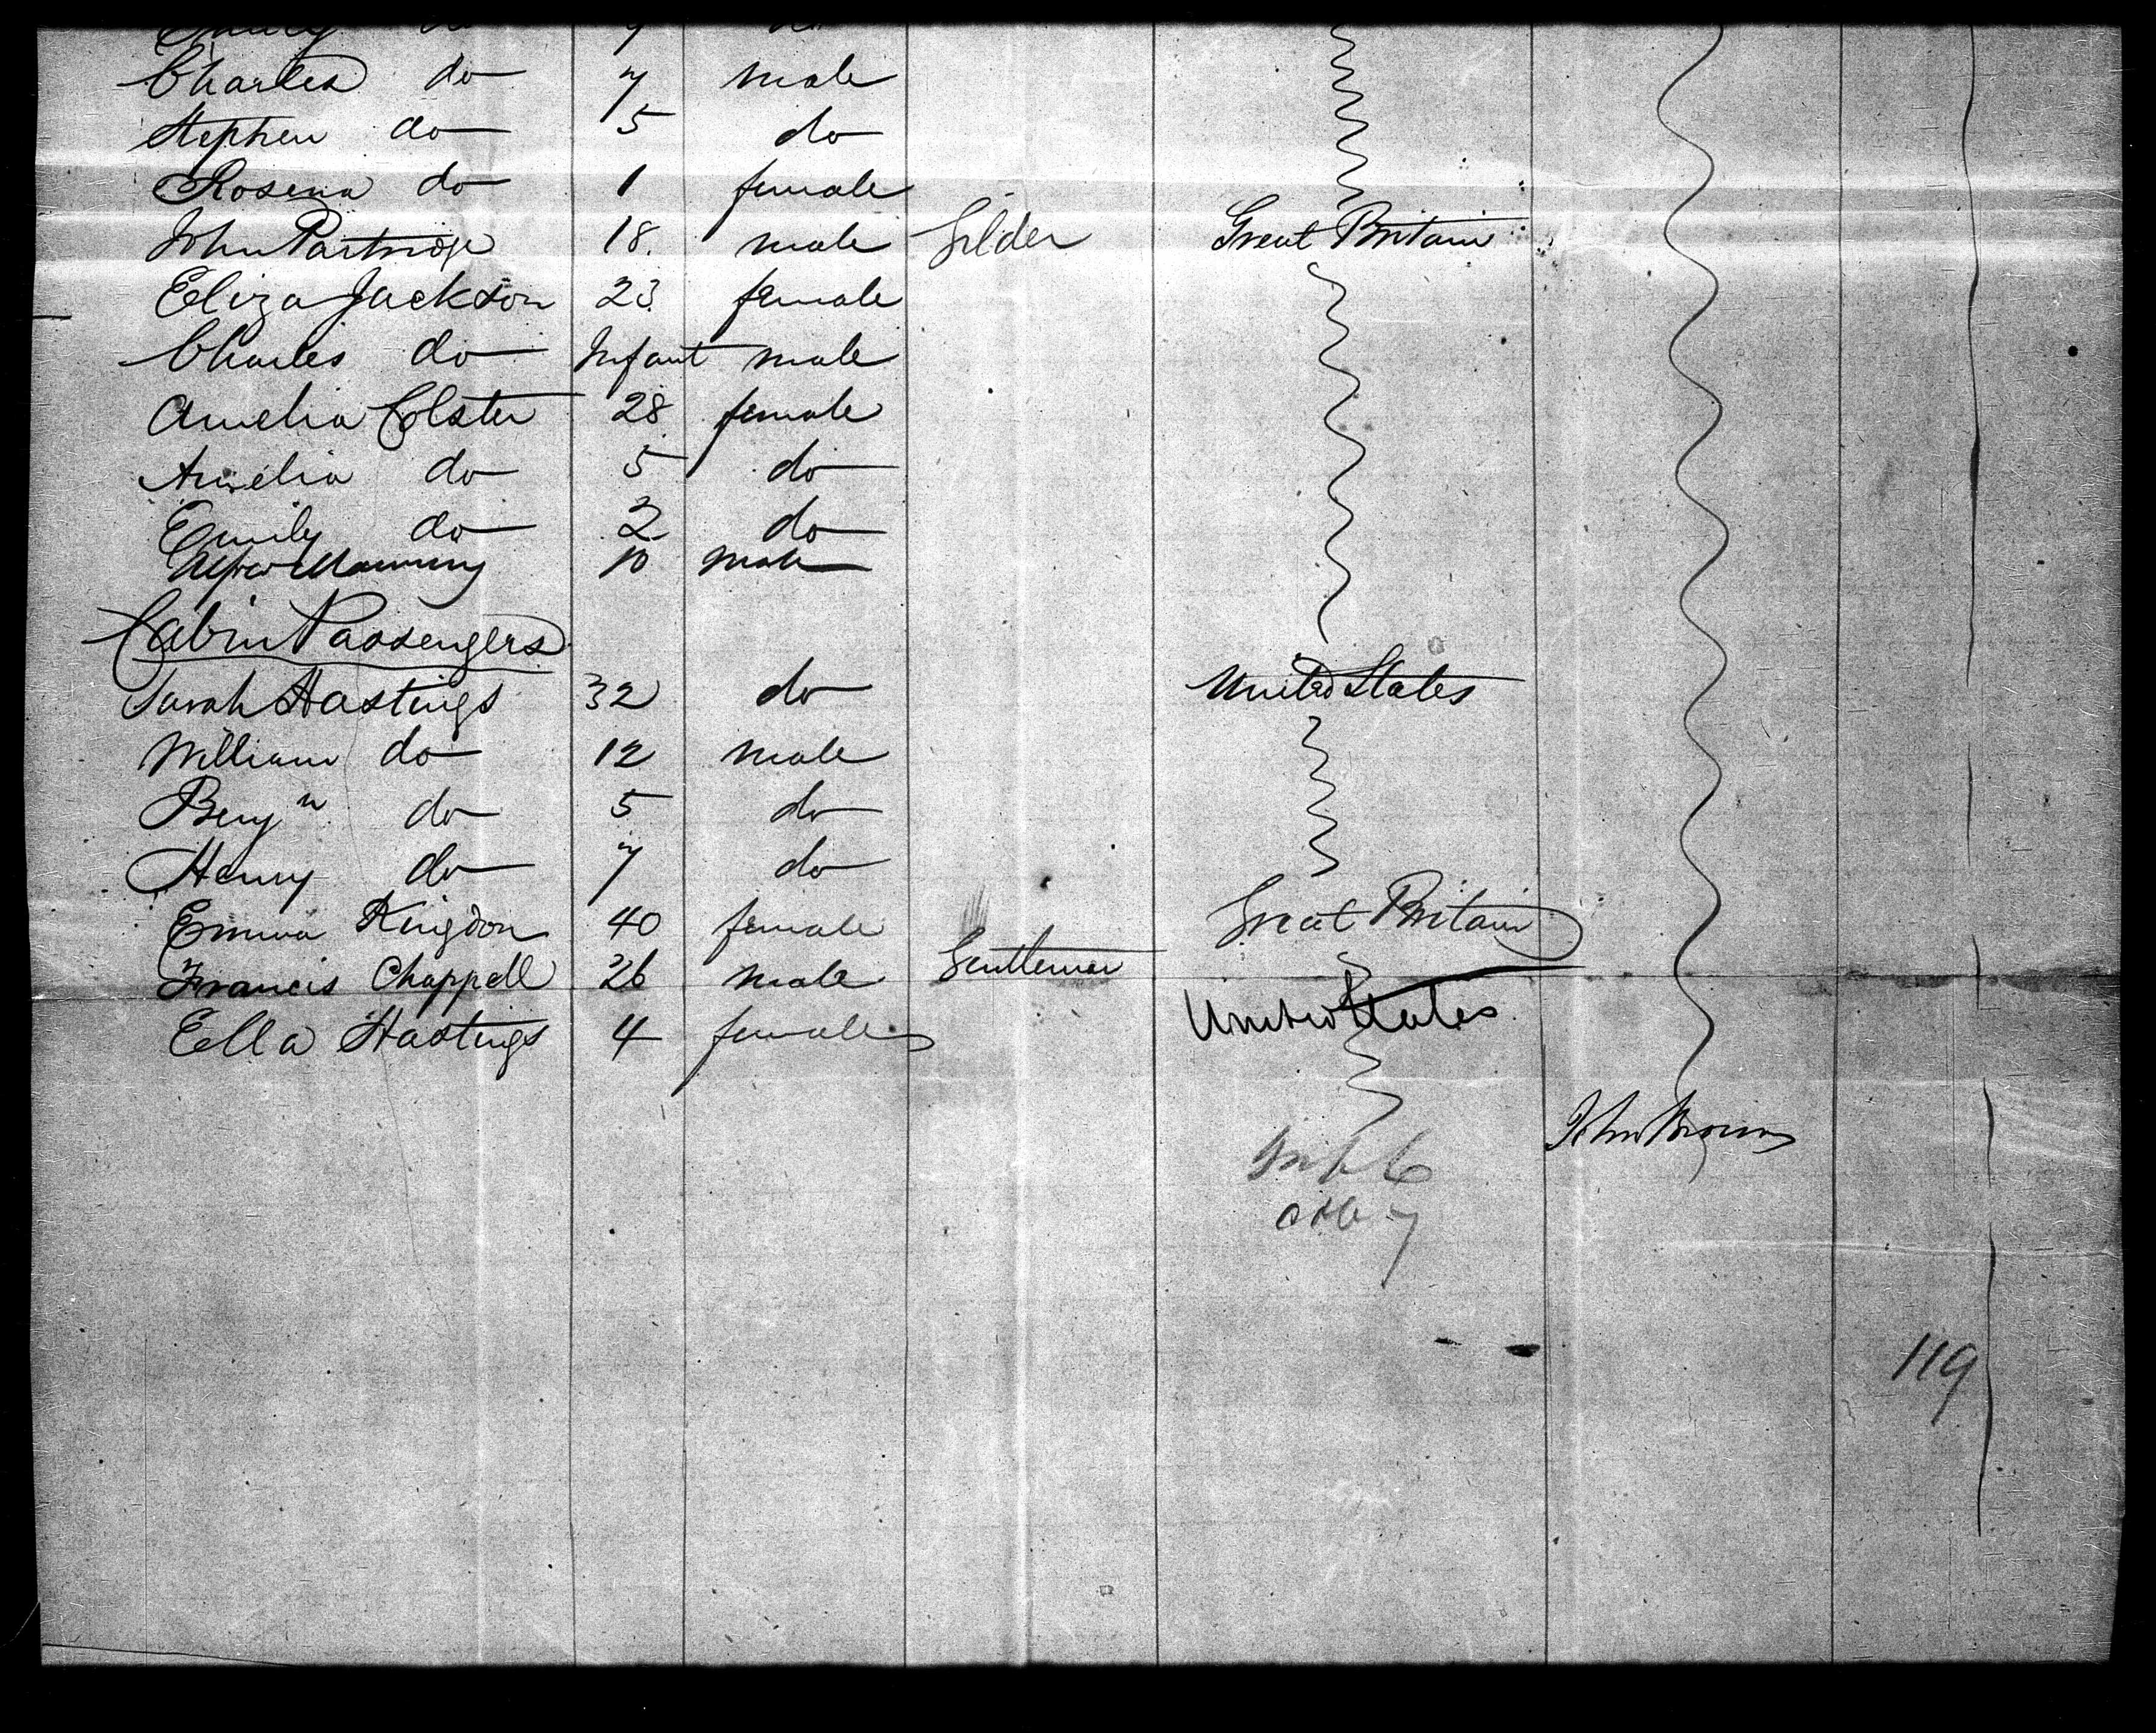 Emily do 9 do
Charles do 7 male
Stephen do 5 do
Rosena do 1 female
John Partridge 18. male Gilder Great Britain
Eliza Jackson 23 female
Charles do Infant male
Amelia Colster 28 female
Amelia do 5 do
Emily do 2 do
Alfred Manning 10 male
Cabin Passengers
Sarah Hastings 32 do United States
William do 12 male
Benjn do 5 do
Henry do 7 do
Emma Kingdon 40 female Great Britain
Francis Chappell 26 male Gentleman
Ella Hastings 4 female United States
John Brown
6
7
119